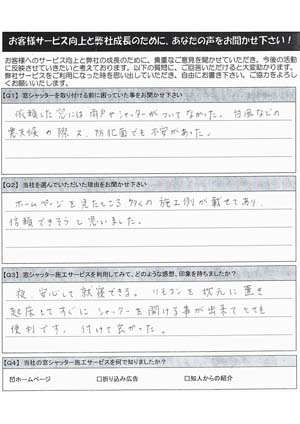 お客様サービス向上と弊社成長のために、あなたの声をお聞かせ下さい!
お客様へのサービス向上と弊社の成長のために、貴重なご意見を聞かせていただき、今後の活動
に反映させていきたいと考えております。以下の質問に、ご回答いただけると大変助かります。
弊社サービスをご利用になった時を思い出していただき、自由にお書き下さい。ご協力をよろし
くお願いいたします。
【Q1】窓シャッターを取り付ける前に困っていた事をお聞かせ下さい
依頼した窓には雨戸やシャッターがついてなかった。台風などの
悪天候の際又、防犯面でも不安があった。
【Q2】当社を選んでいただいた理由をお聞かせ下さい
ホームページを見たところ多くの施工例が載せてあり、
信頼できそうと思いました。
【Q3】窓シャッター施工サービスを利用してみて、どのような感想、印象を持ちましたか?
夜、安心して就寝できる。リモコンを枕元に置き
起床してすぐにシャッターを開ける事が出来てとても
便利です。付けて良かった。
【Q4】当社の窓シャッター施工サービスを何で知りましたか?
☑ホームページ □折り込み広告 □知人からの紹介